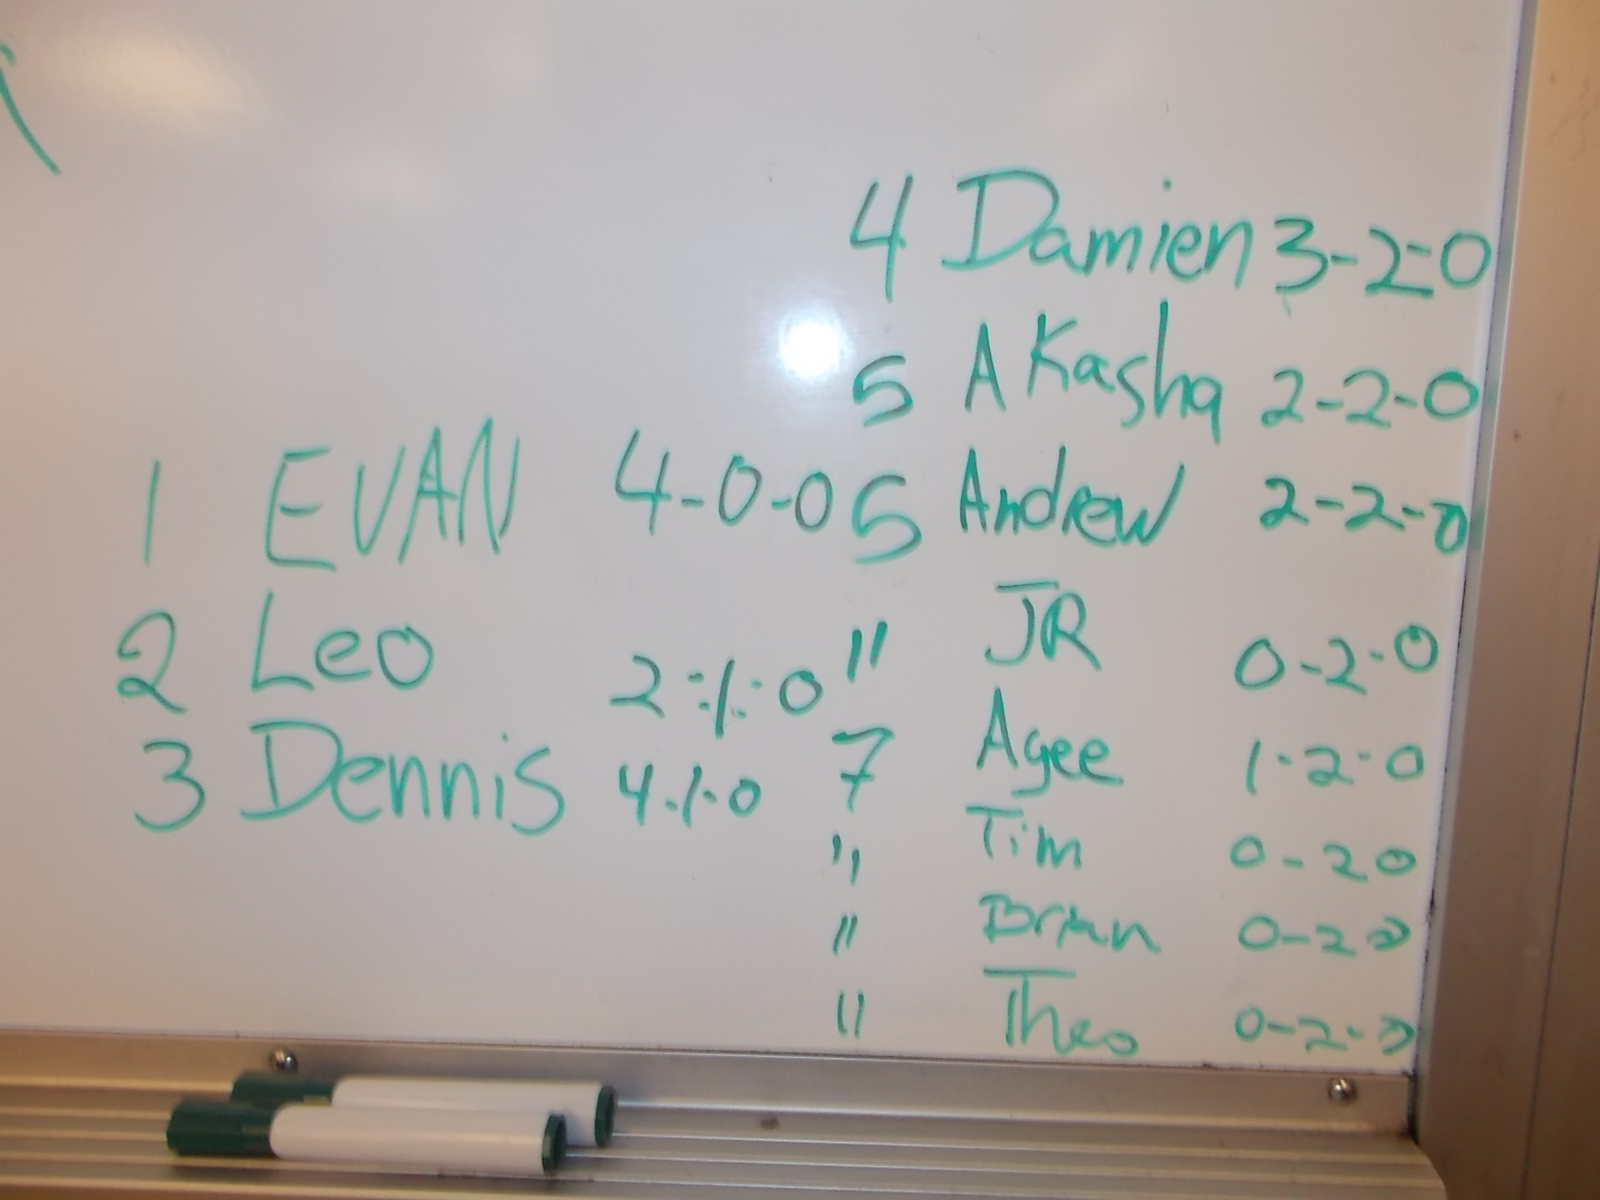 1 EVAN 4-0-0
2 Leo 2-1-0
3 Dennis 4-1-0
4 Damien 3-2-0
5 AKasha 2-2-0
5 Andrew 2-2-0
" JR 0-2-0
7 Agee 1-2-0
" Tim 0-20
" Brian 0-20
" Theo 0-2-0